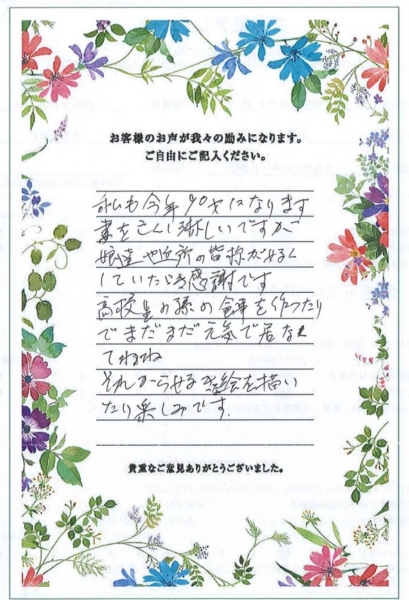 お客様のお声が我々の励みになります。
ご自由にご記入ください。
私も今年90才になります
妻を亡くし淋しいですが
娘達や近所の皆称がよく
していただき感謝です
高校生の孫の食事を作ったり
でまだまだ元気で居なく
てわね
それからせる 絵を描い
たり楽しみです。
貴重なご意見ありがとうございました。